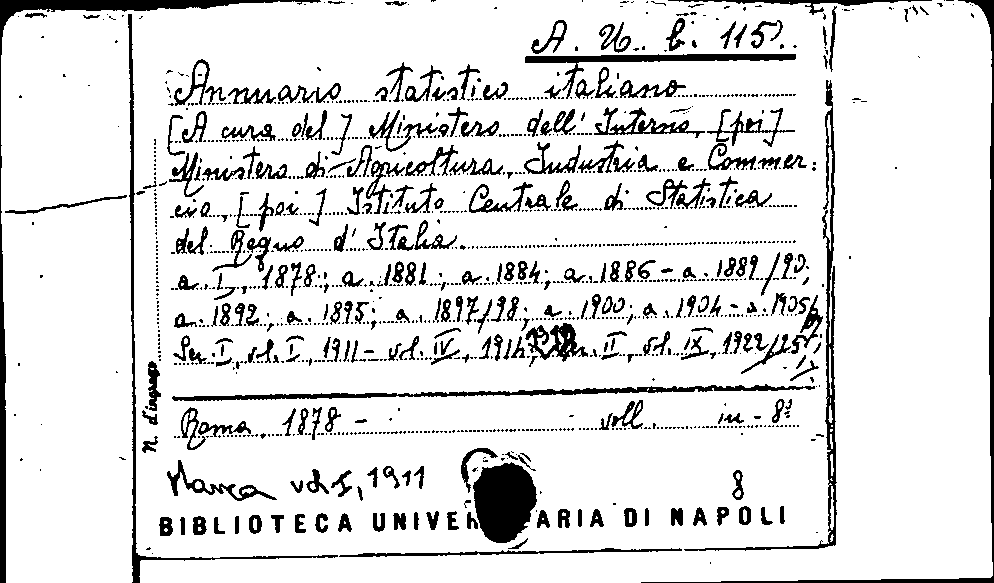 A. U. b. 115.
Annuario statistico italiano
[A cura del] Ministero dell' Interno, [poi]
Ministero di Agricoltura, Industria e Commer:
cio, [poi] Istituto Centrale di Statistica
del Regno d' Italia.
a. I, 1878; a. 1881; a. 1884; a. 1886 - a. 1889/90;
a. 1892; a. 1895; a. 1897/98; a. 1900; a. 1904 - a. 1905/
Ser. I, vol. I, 1911 - vol. IV, 1914; II, vol. IX, 1922/25;
N. d'ingresso
Roma. 1878 - voll. in - 8º
Manca vol I, 1911
8
BIBLIOTECA UNIVER ARIA DI NAPOLI